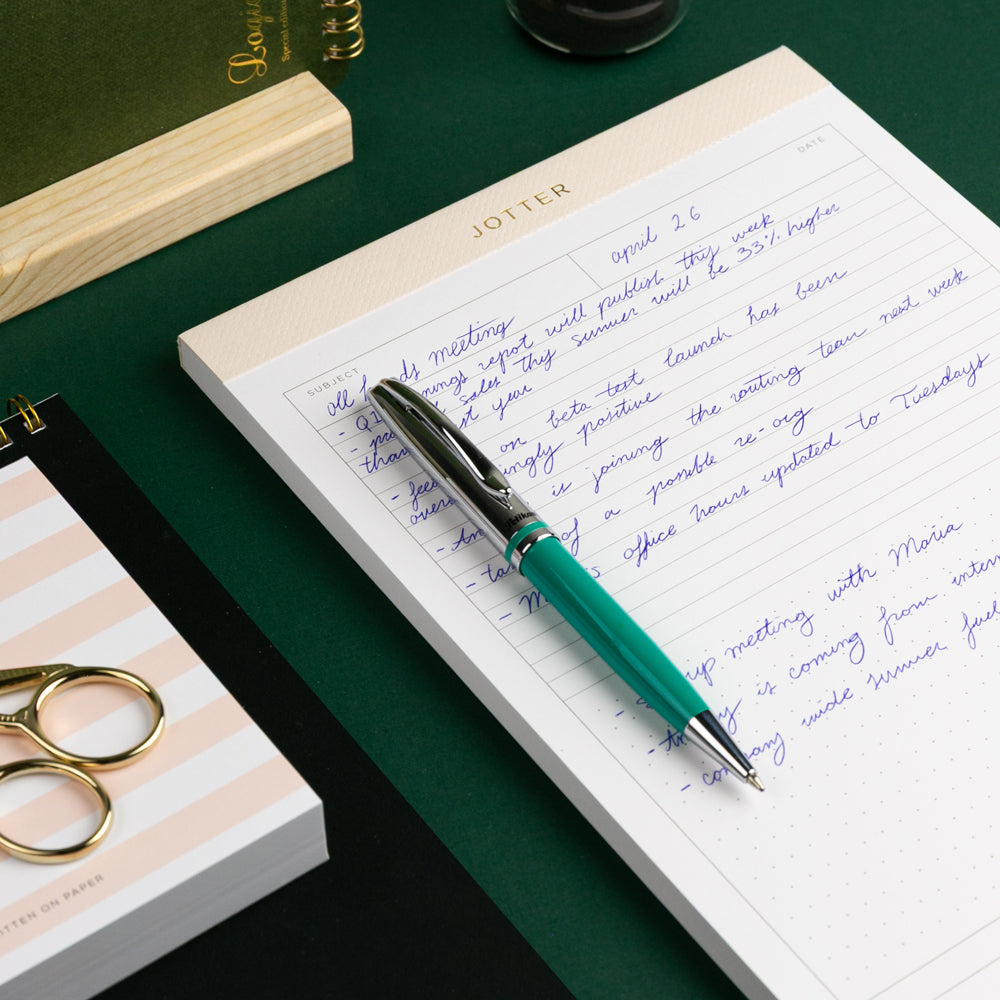 Special edition
JOTTER
DATE
april 26
SUBJECT
all hands meeting
- Q1 earnings repot will publish this week
- sales thiy summer will be 33% higher
than last year
- on beta test launch has been
overwhelmingly positive
- is joining the routing team next week
- of a possible re-org
- office hours updated to Tuesdays
- up meeting with Maria
- is coming from
- company wide summer
Pelikan
WRITTEN ON PAPER